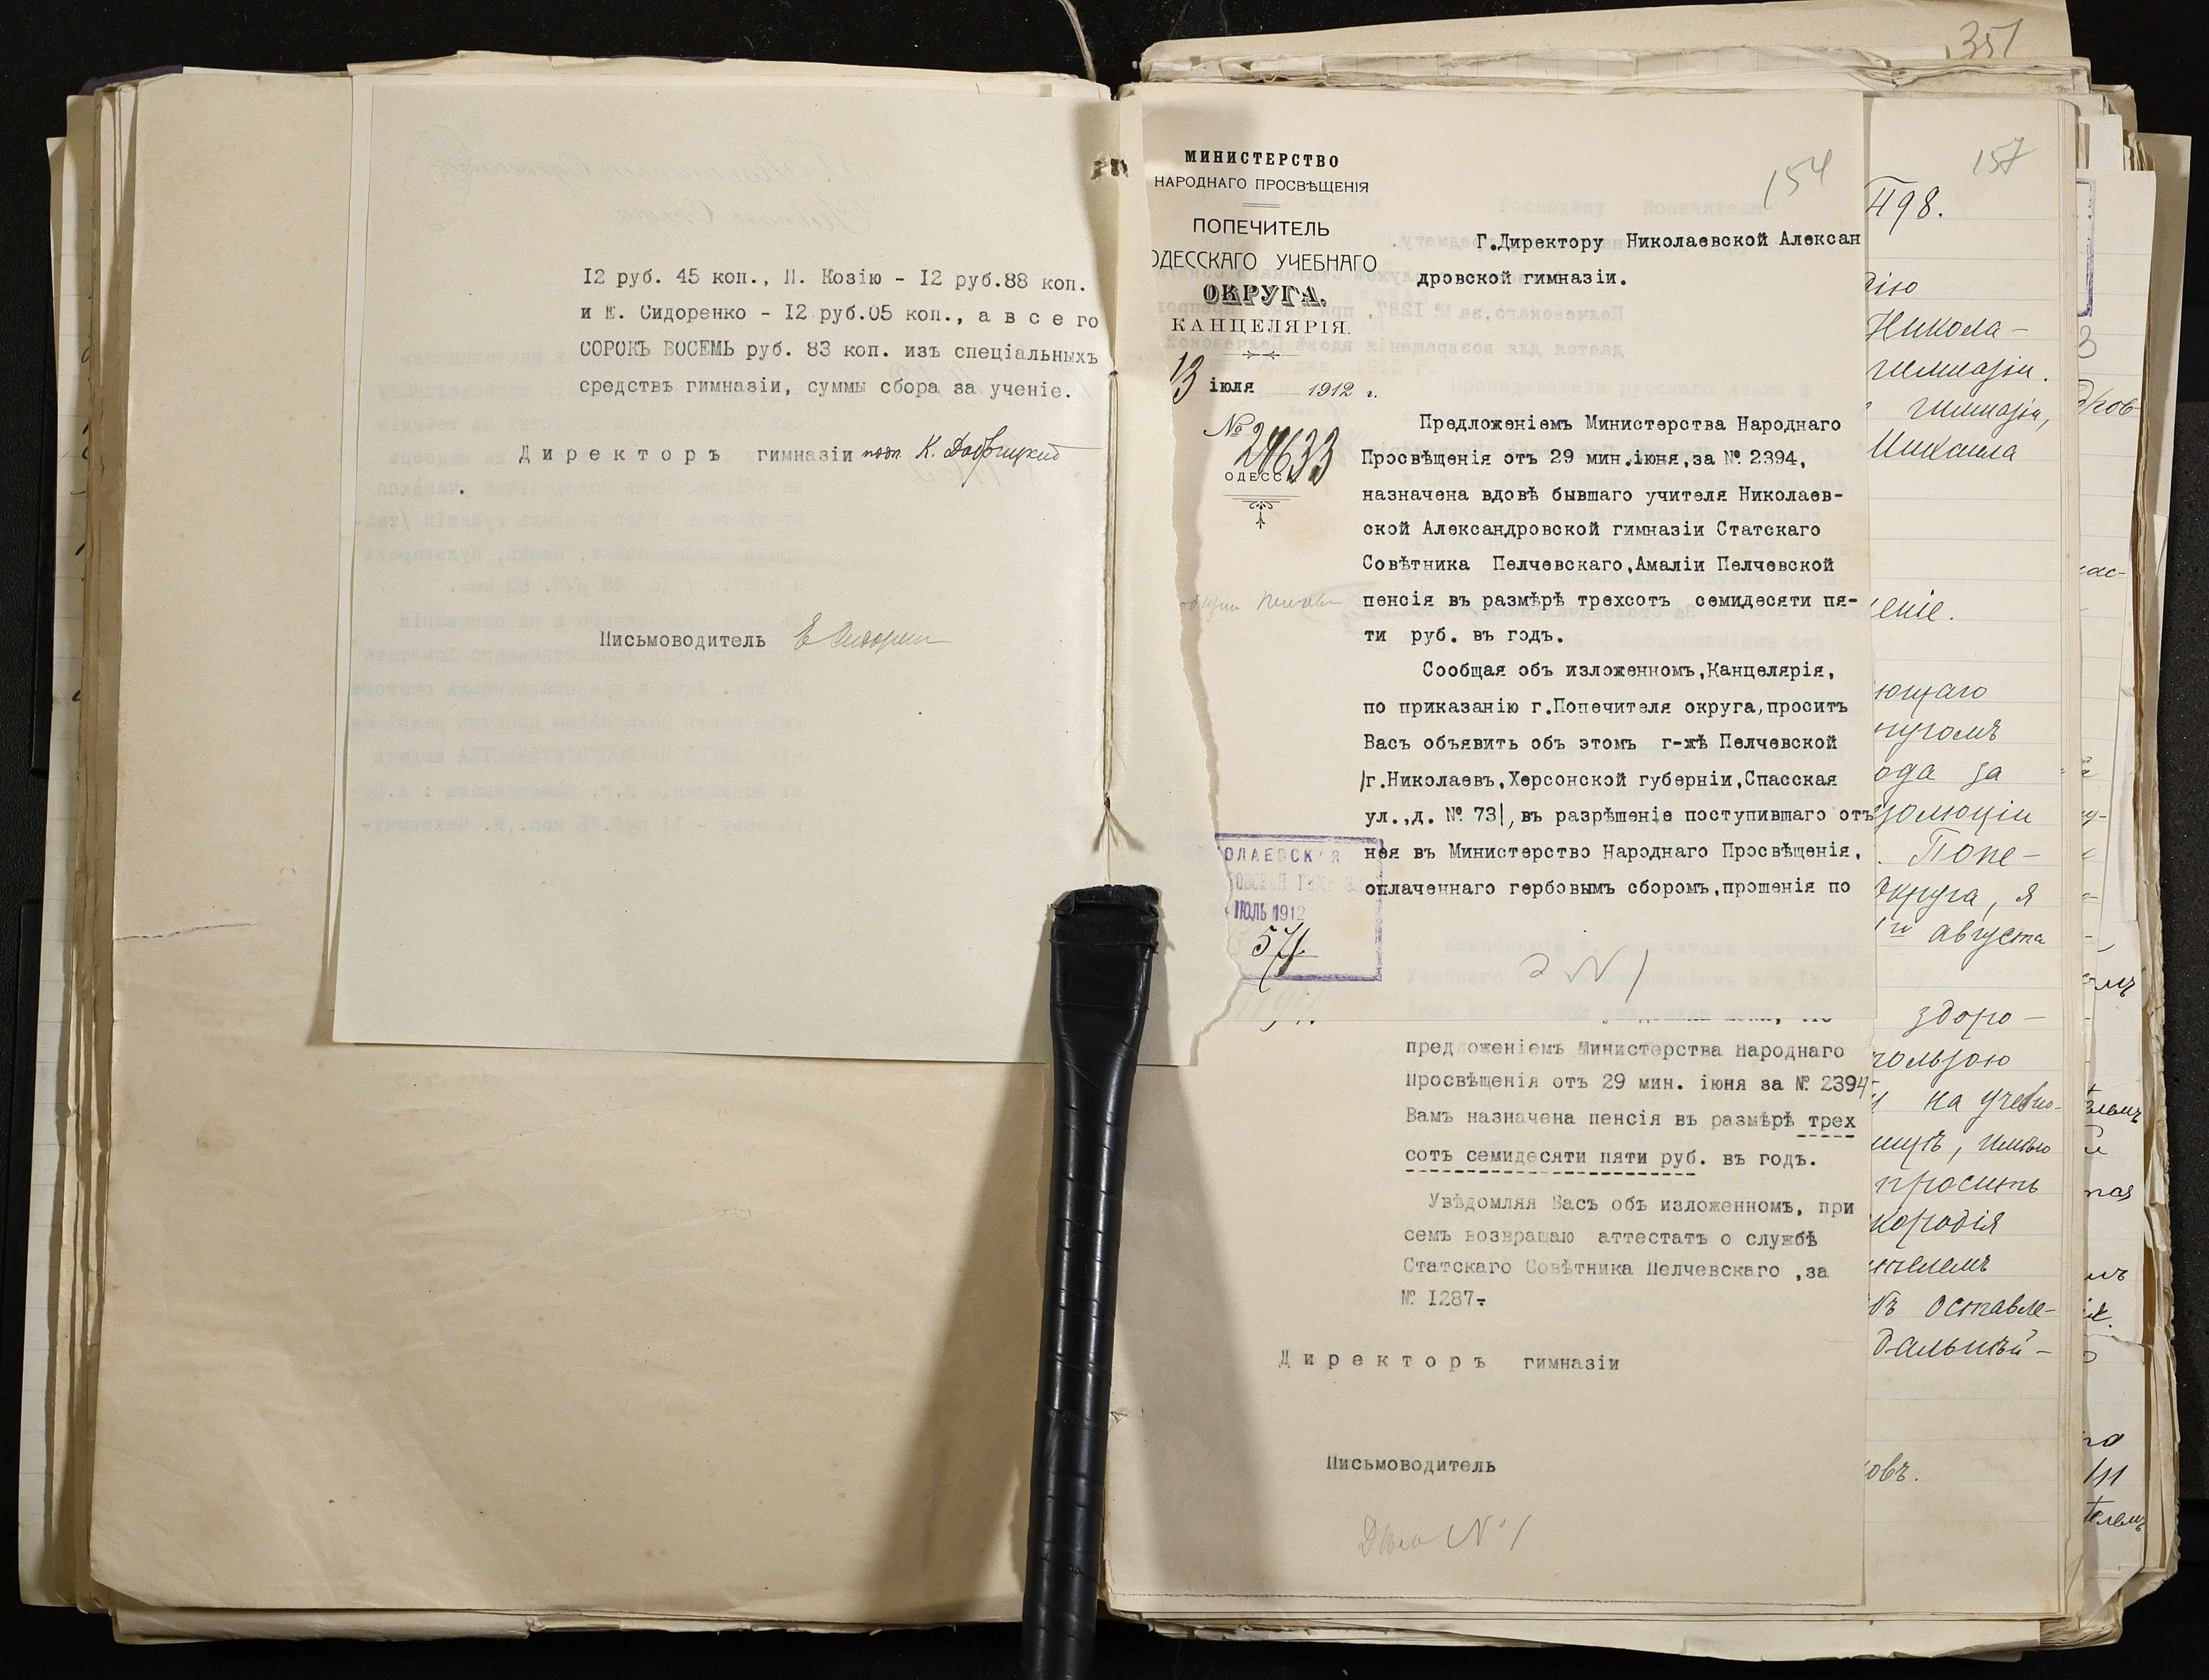 12 руб. 45 коп., П. Козію - 12 руб.88 коп.
и Е. Сидоренко - 12 руб.05 коп., а в с е го
СОРОКЪ ВОСЕМЬ руб. 83 коп. изъ спеціальныхъ
средствъ гимназіи, суммы сбора за ученіе.
Д и р е к т о р ъ гимназіи подп. К.
Письмоводитель
351
157
154
МИНИСТЕРСТВО
НАРОДНАГО ПРОСВѢЩЕНІЯ
ПОПЕЧИТЕЛЬ
ОДЕССКАГО УЧЕБНАГО
ОКРУГА.
КАНЦЕЛЯРІЯ.
13 іюля 1912 г.
№ 24633
ОДЕССА
Г.Директору Николаевской Алексан
дровской гимназіи.
Предложеніемъ Министерства Народнаго
Просвѣщенія отъ 29 мин.іюня,за № 2394,
назначена вдовѣ бывшаго учителя Николаев-
ской Александровской гимназіи Статскаго
Совѣтника Пелчевскаго,Амаліи Пелчевской
пенсія въ размѣрѣ трехсотъ семидесяти пя-
ти руб. въ годъ.
Сообщая объ изложенномъ,Канцелярія,
по приказанію г.Попечителя округа,проситъ
Васъ объявить объ этомъ г-жѣ Пелчевской
/г.Николаевъ,Херсонской губерніи,Спасская
ул.,д. № 73/,въ разрѣшеніе поступившаго отъ
нея въ Министерство Народнаго Просвѣщенія,
оплаченнаго гербовымъ сборомъ,прошенія по
ОЛАЕВСКАЯ
ІЮЛЬ 1912
571
предложеніемъ Министерства Народнаго
Просвѣщенія отъ 29 мин. іюня за № 2394
Вамъ назначена пенсія въ размѣрѣ трех
сотъ семидесяти пяти руб. въ годъ.
Увѣдомляя Васъ объ изложенномъ, при
семъ возвращаю аттестатъ о службѣ
Статскаго Совѣтника Пелчевскаго ,за
№ 1287-
Д и р е к т о р ъ гимназіи
Письмоводитель
Дѣло № 1
498.
Никола-
гимназіи.
гимназіи,
Михаила
еніе.
ющаго
ода за
Попе-
округа, я
августа
здоро-
пользою
на учебно-
имѣю
просить
оставле-
дальнѣй-